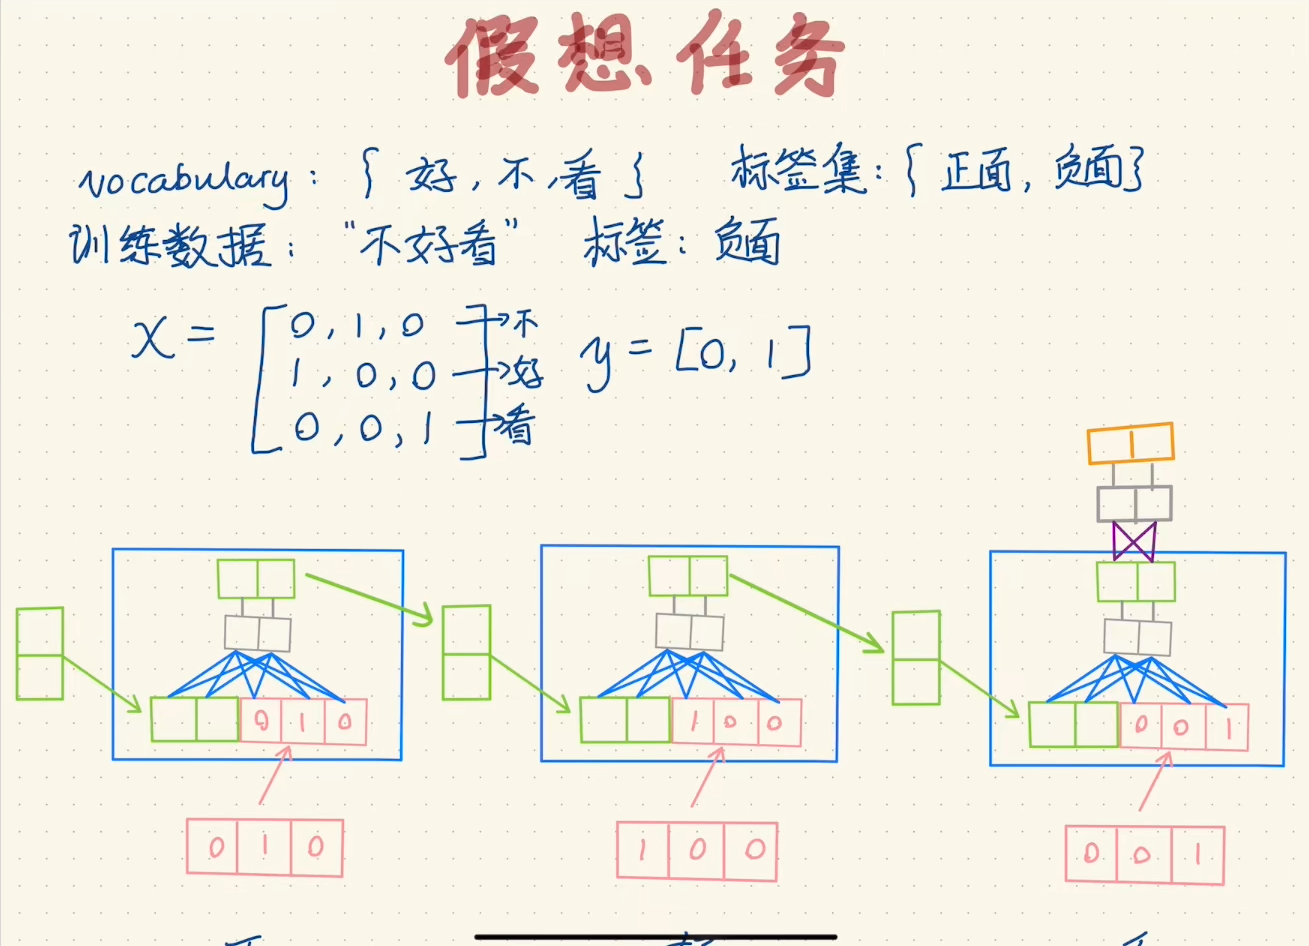 假想任务
vocabulary: { 好, 不, 看 } 标签集: { 正面, 负面}
训练数据: “不好看” 标签: 负面
x = [ 0, 1, 0 → 不
1, 0, 0 → 好
0, 0, 1 ] → 看
y = [0, 1]
0 1 0
1 0 0
0 0 1
0 1 0
1 0 0
0 0 1